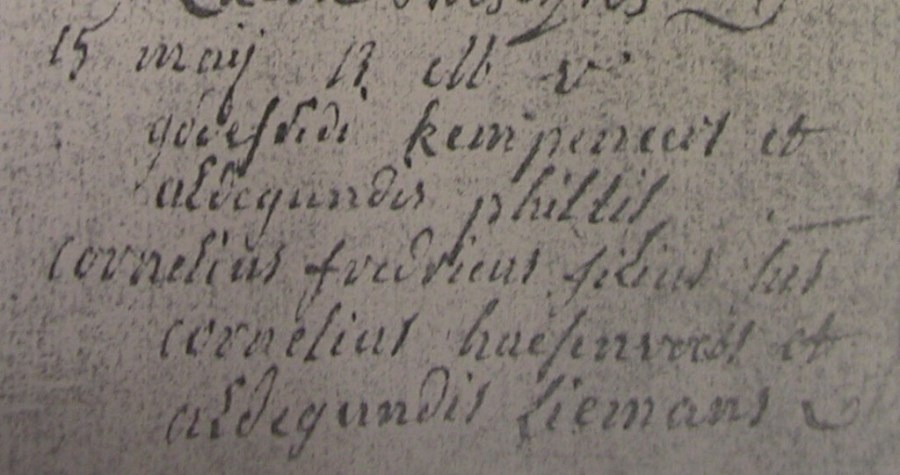 15 maij 13 elb v
godefridi kempeneers et
aldegundis philtis
cornelius fredricus filius lus
cornelius haesenvoets et
aldegundis siemans